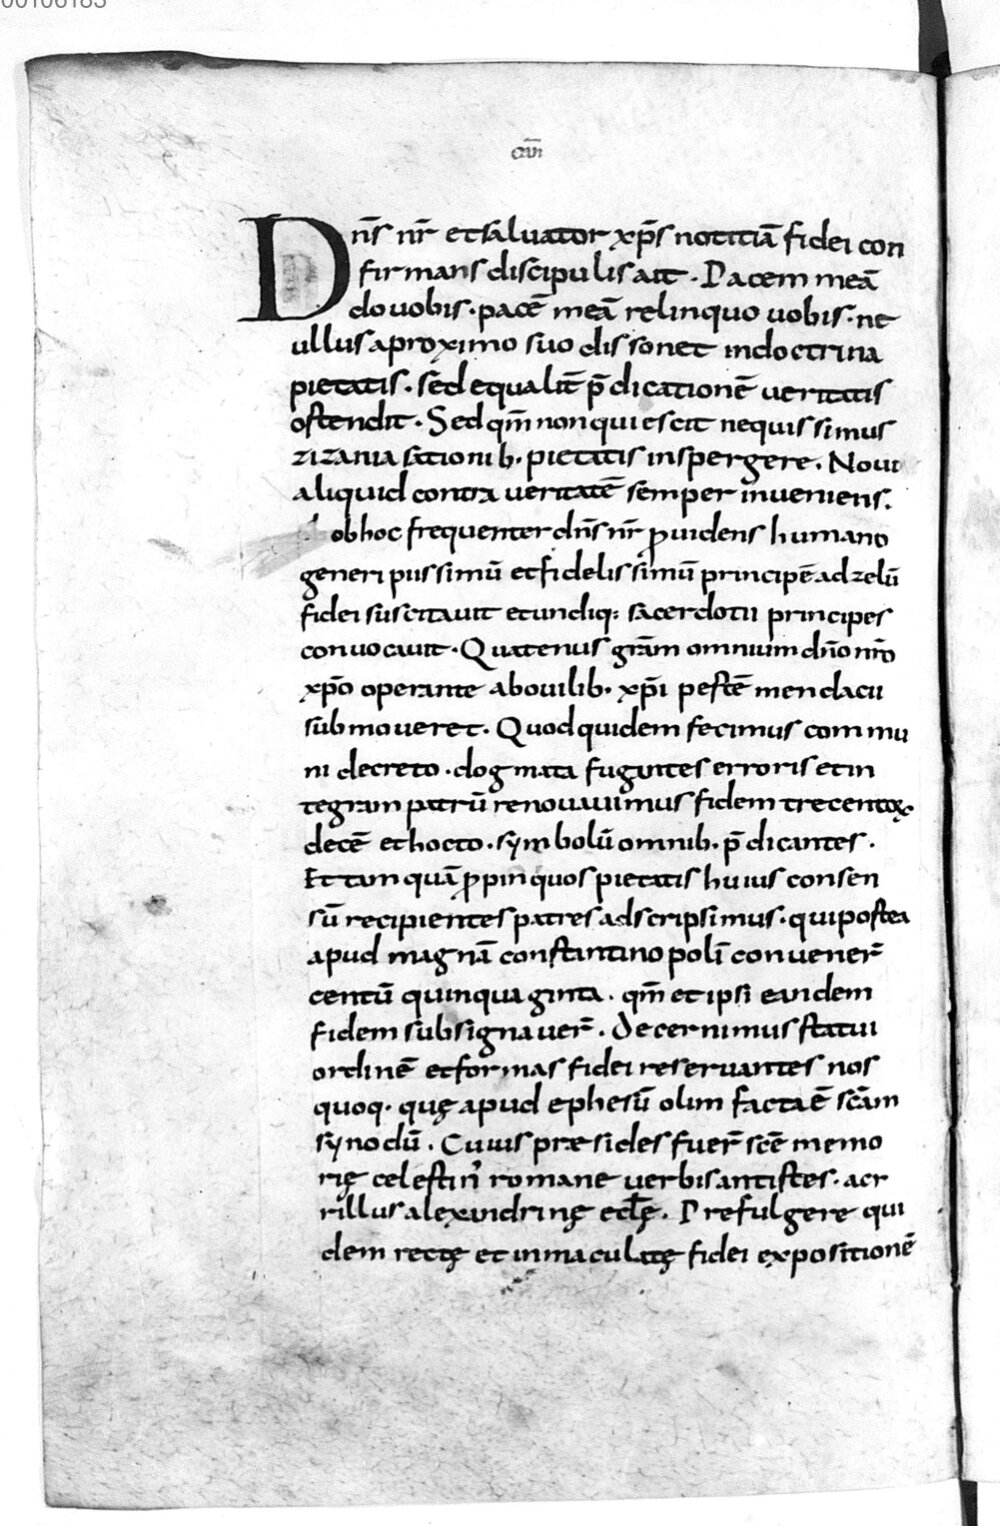 00106183
cvii
Dn̄s nr̄ et saluator xp̄s notitiā fidei con
firmans discipulis ait · Pacem meā
do uobis · pacē meā relinquo uobis · ne
ullus aproximo suo dissonet in doctrina
pietatis · sed equalit̄ p̄dicationē ueritatis
ostendit · Sed qm̄ non quiescit nequissimus
zizania sationib· pietatis inspergere · Noui
aliquid contra ueritatē semper inueniens ·
ob hoc frequenter dn̄s nr̄ ꝓuidens humano
generi piissimū et fidelissimū principē ad zelū
fidei suscitauit et undiq: sacerdotii principes
conuocauit · Quatenus gr̄am omnium dn̄o nr̄o
xp̄o operante ab ouilib· xp̄i pestē mendacii
submoueret · Quod quidem fecimus commu
ni decreto · dogmata fugantes erroris et in
tegram patrū renouauimus fidem trecentoꝝ
decē et hocto · symbolū omnib· p̄dicantes ·
Et tam quā ꝓpinquos pietatis huius consen
sū recipientes patres adscripsimus · qui postea
apud magnā constantinopolī conuener̄
centū quinquaginta · qm̄ et ipsi eandem
fidem subsignauer̄ · Decernimus statui
ordinē et formas fidei reseruantes nos
quoq· quę apud ephesū olim facta ē sc̄am
synodū · Cuius præsides fuer̄ sc̄e memo
rię celestin' romane urbis antistes · acy
rillus alexandrinę ecl̄ę · Prefulgere qui
dem rectę et inmaculatę fidei expositionē